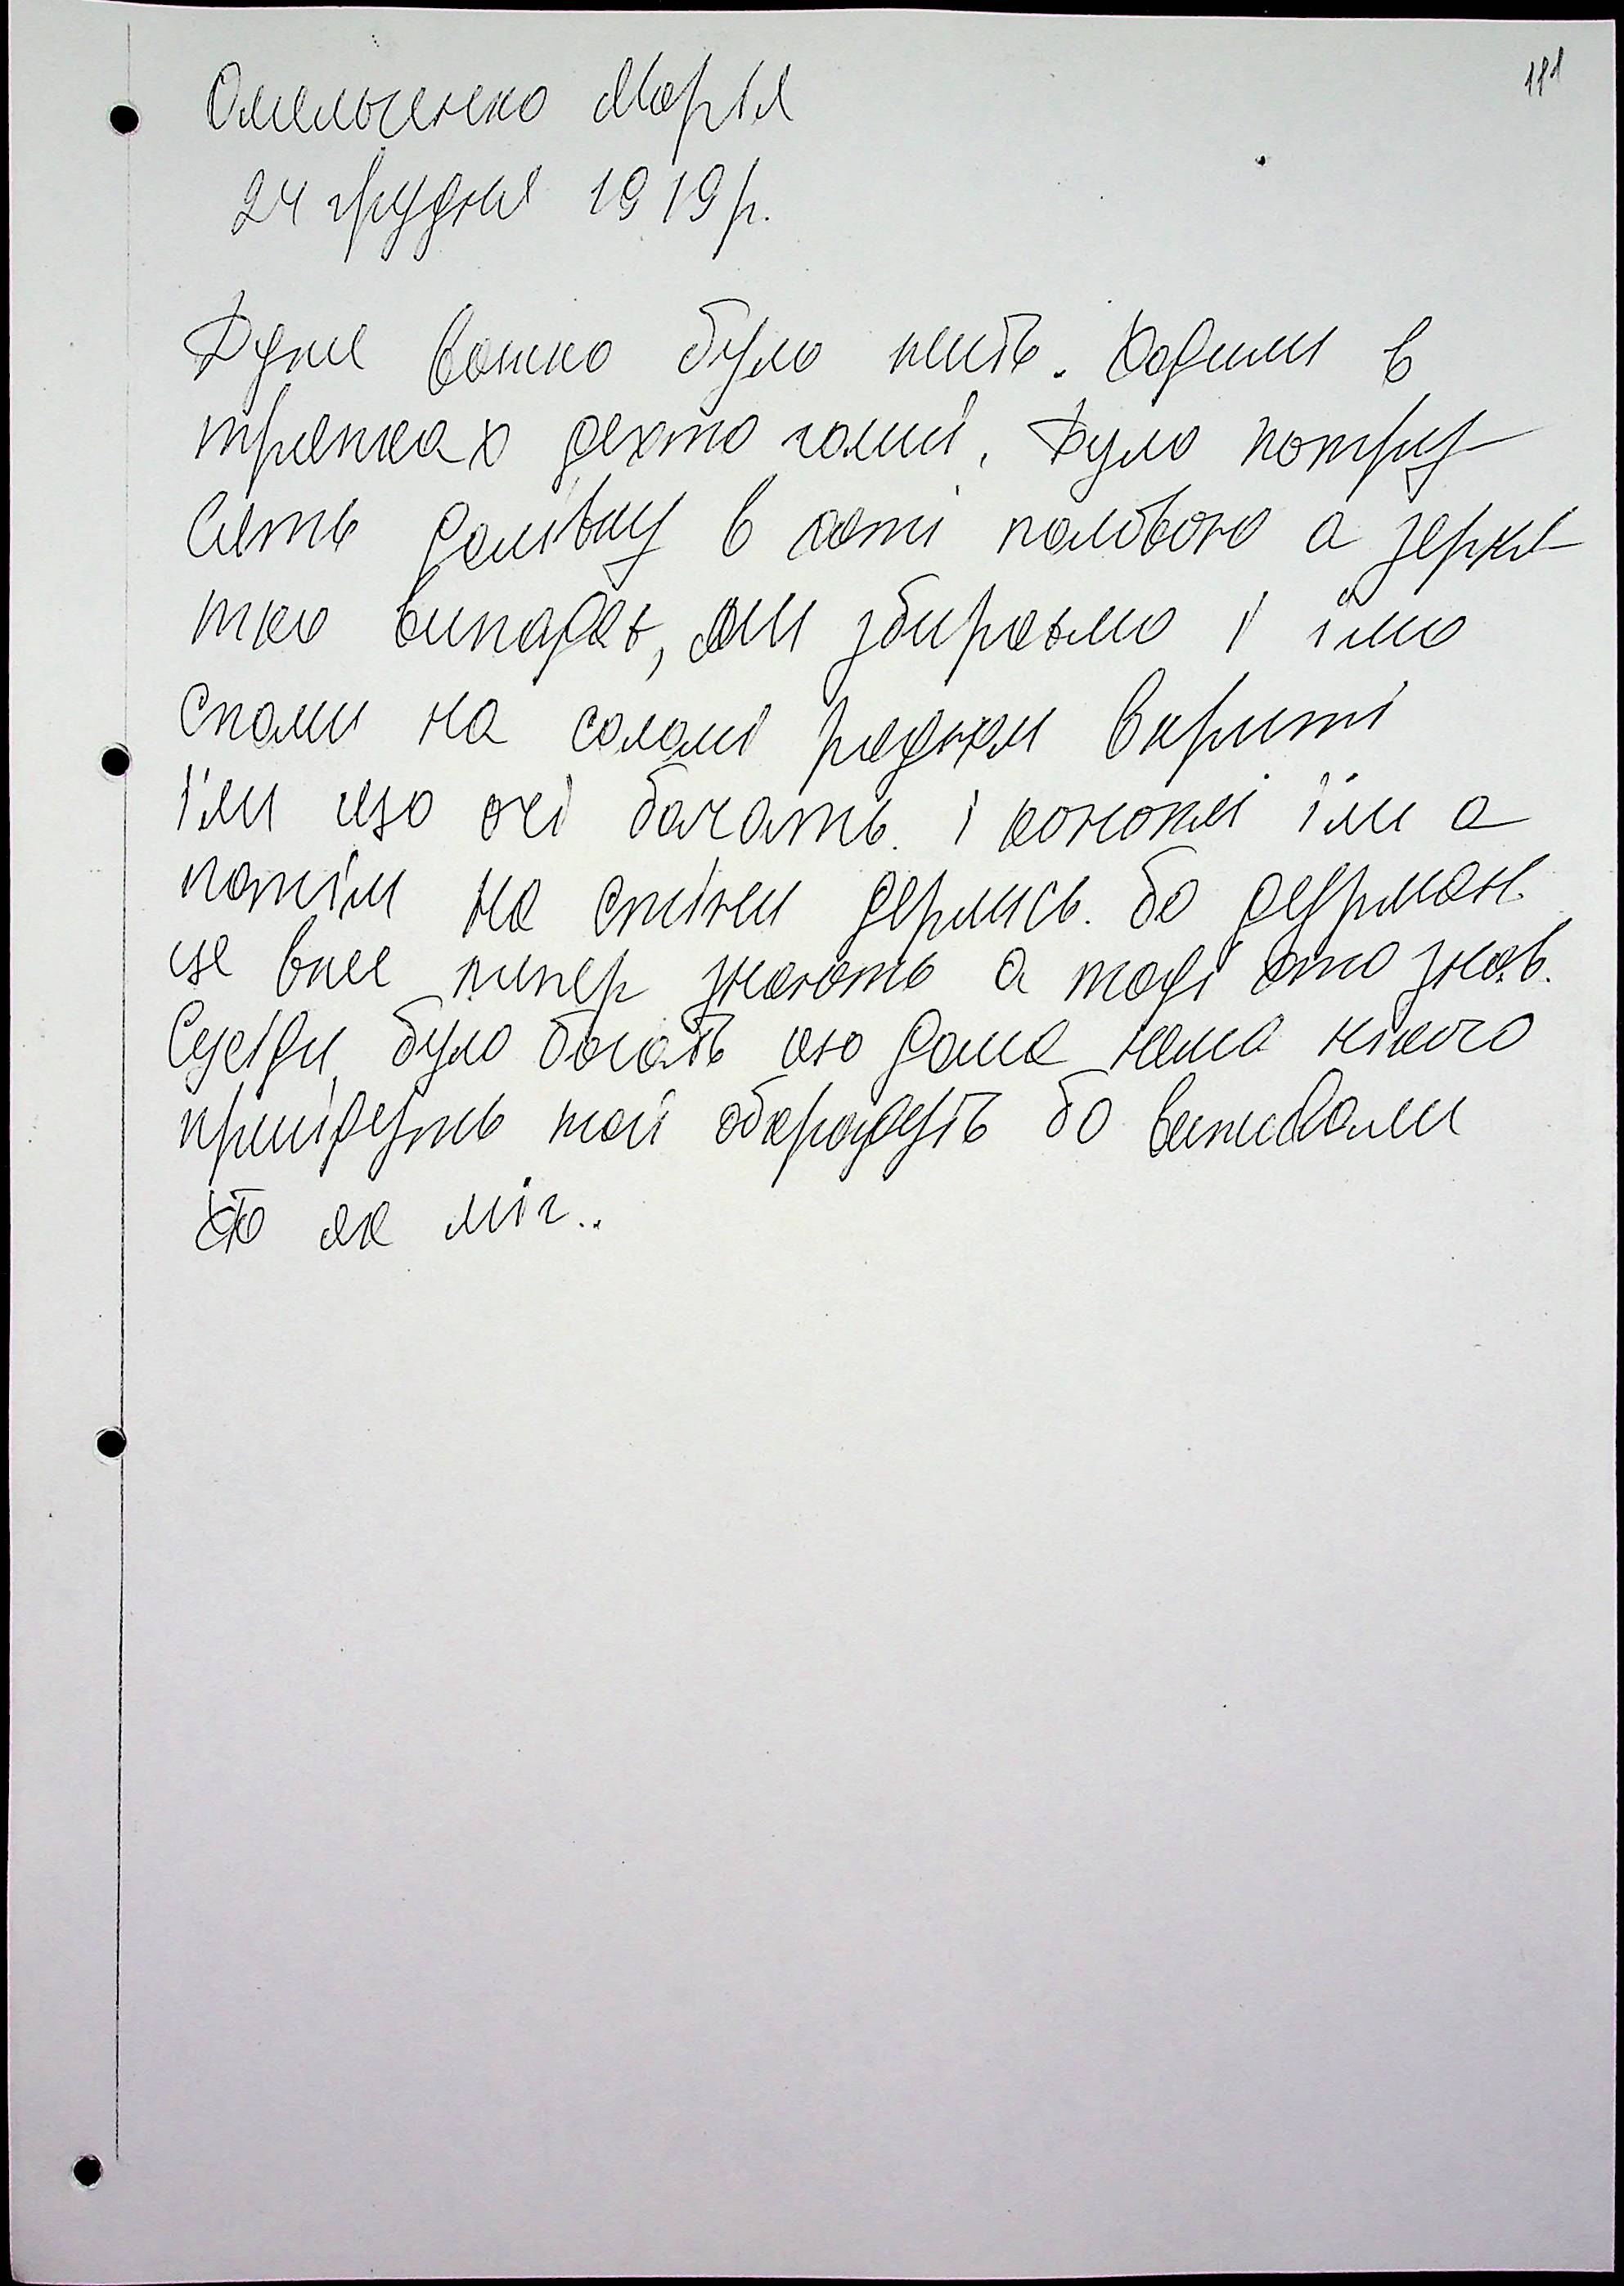 181
Омельченко Марія
24 грудня 1919 р.
Дуже важко було жить. Ходили в
тряпках дехто голий. Було потру-
сять долівку в хаті половою а зерня-
тко випадає, ми збираємо і їмо
Спали на соломі рядном вкриті
їли що очі бачать. і коноплі їли а
потім на стіни дерлись. бо дурман.
це вже тепер знають а тоді хто знав.
Сусіди було бачать що дома нема нікого
прийдуть той обкрадуть бо виживали
хто як міг..